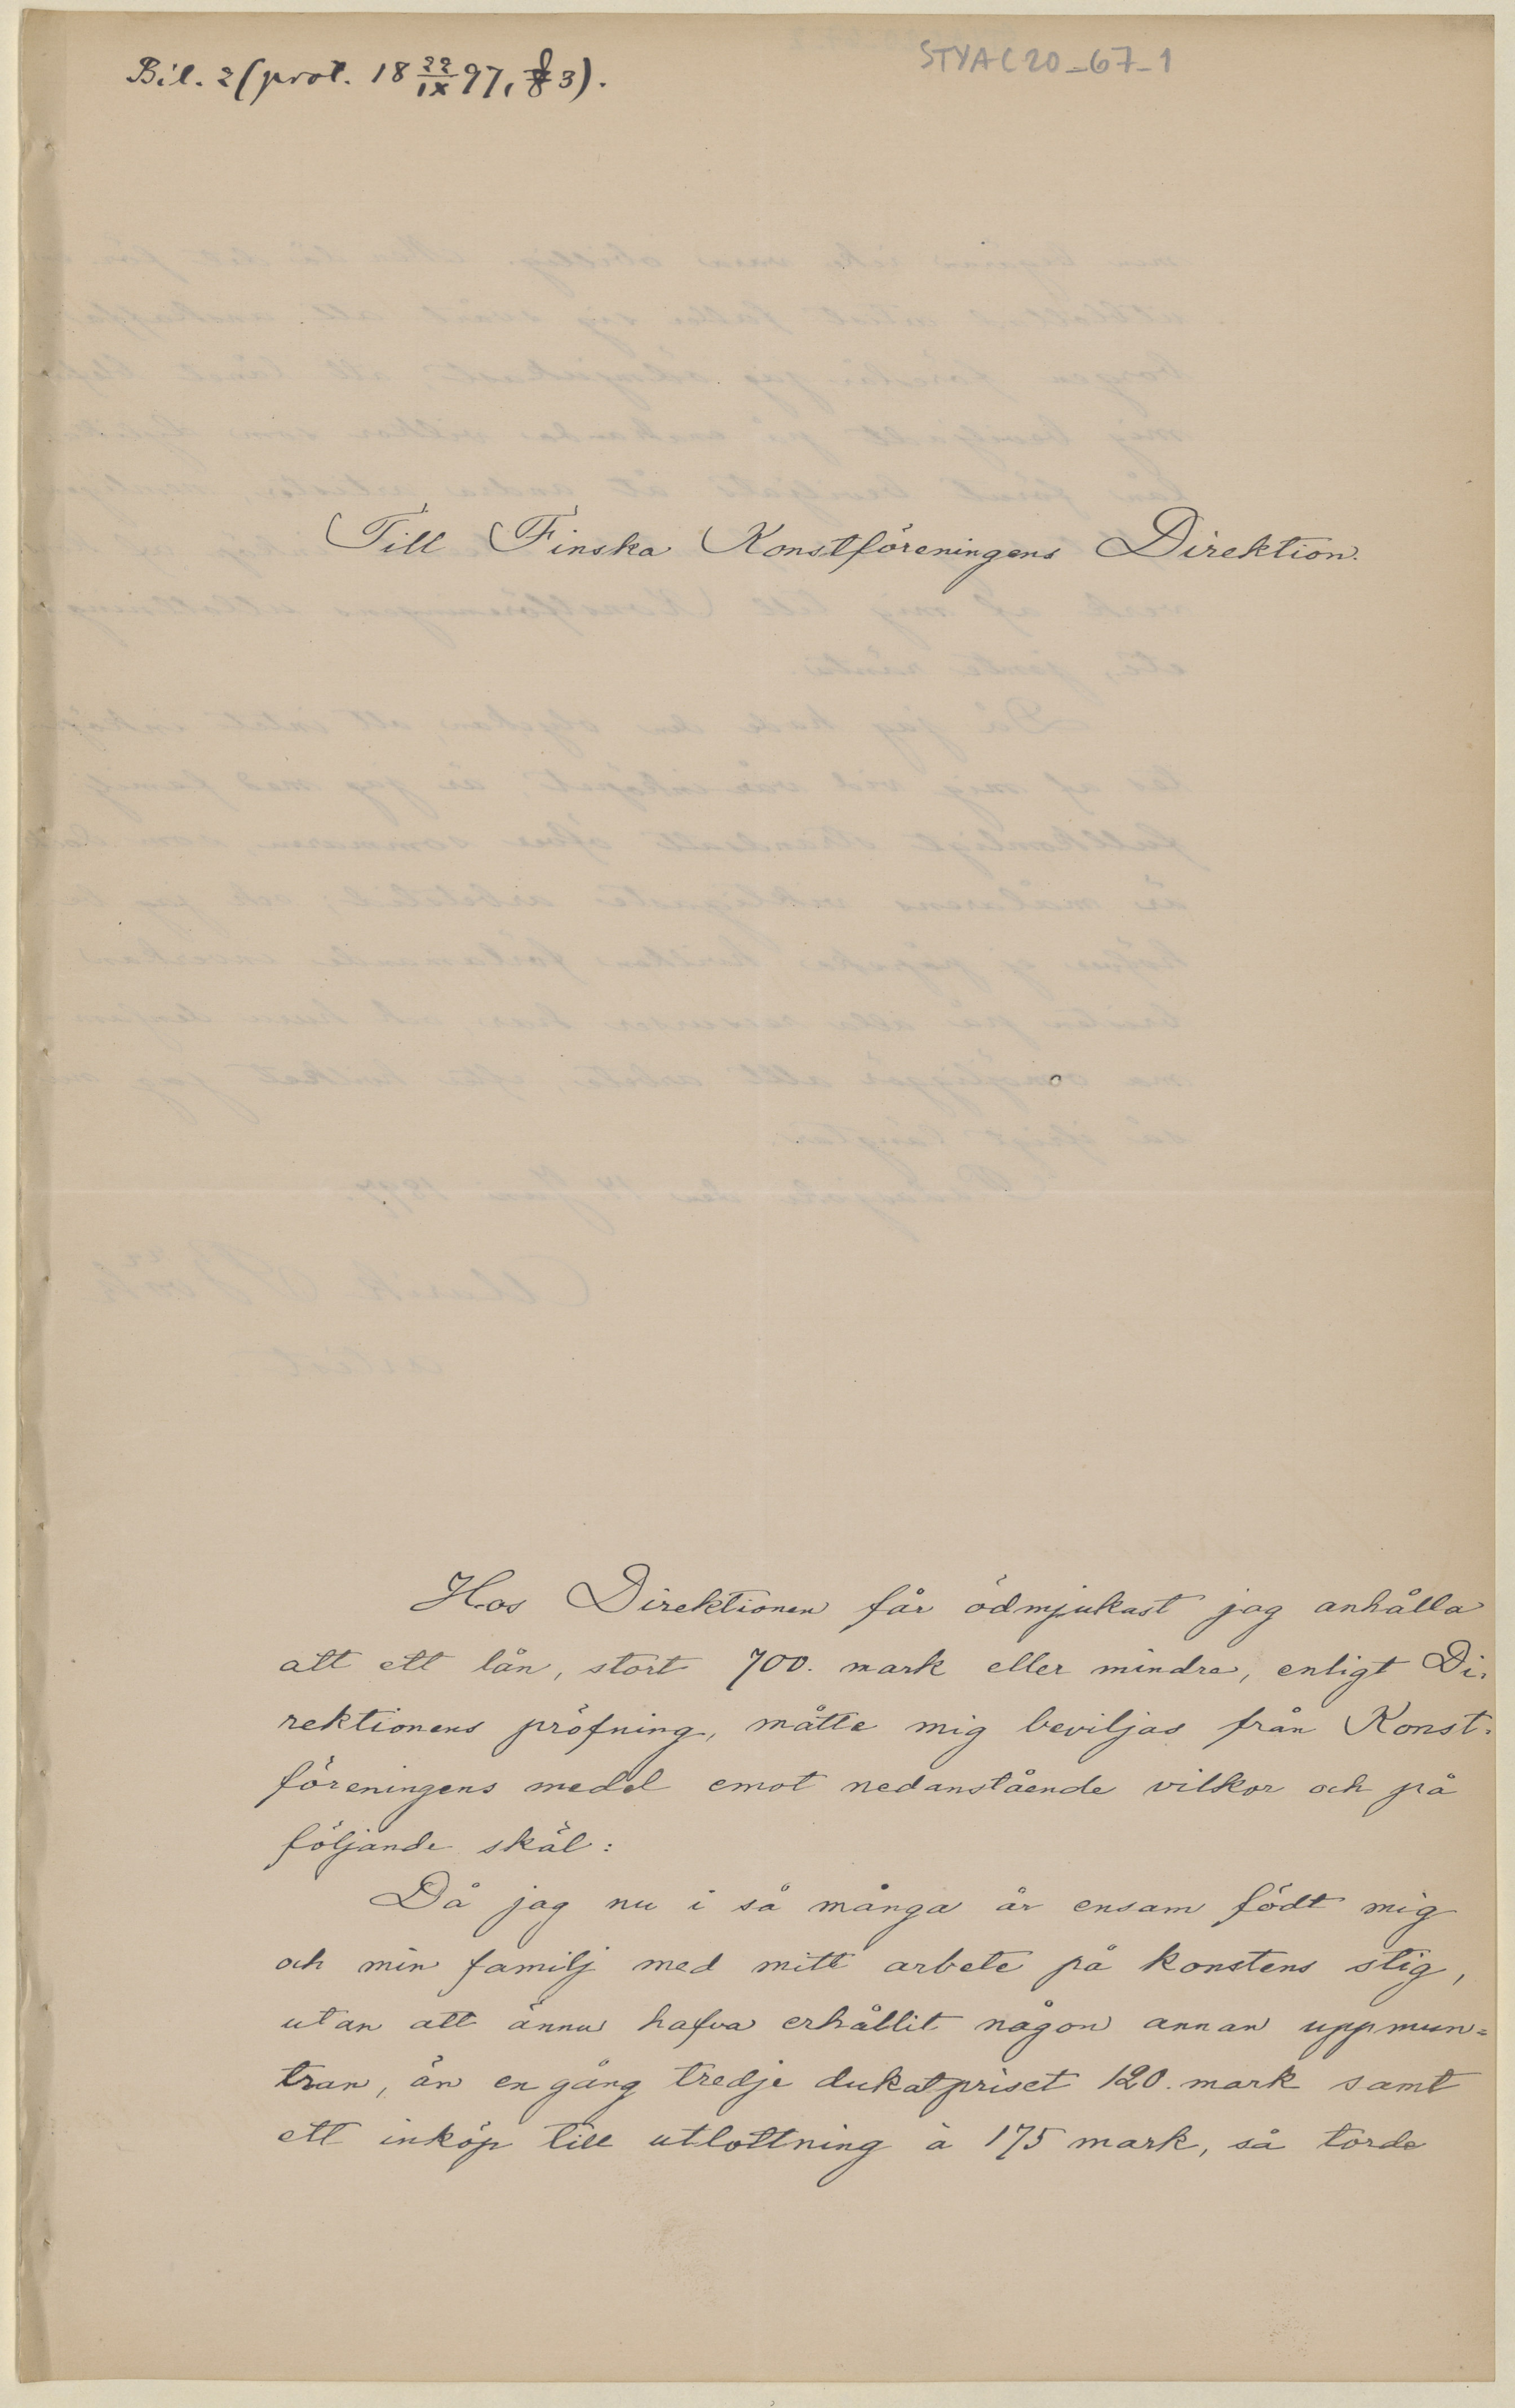 Bil. 2 (prot. 18 22/IX 97, § 3).
STYA C20_67_1
Till Finska Konstföreningens Direktion.
Hos Direktionen får ödmjukast jag anhålla
att ett lån, stort 700. mark eller mindre, enligt Di-
rektionens pröfning, måtte mig beviljas från Konst-
föreningens medel emot nedanstående vilkor och på
följande skäl:
Då jag nu i så många år ensam födt mig
och min familj med mitt arbete på konstens stig,
utan att ännu hafva erhållit någon annan uppmun=
tran, än en gång tredje dukatpriset 120. mark samt
ett inköp till utlottning à 175 mark, så torde